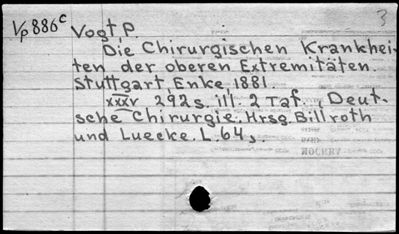 3
Vp 886c Vogt, P.
Die Chirurgischen Krankhei-
ten der oberen Extremitäten.
Stuttgart, Enke, 1881.
xxxv 292 s. ill. 2 Taf., (Deut-
sche Chirurgie. Hrsg. Billroth
und Luecke. L. 64).